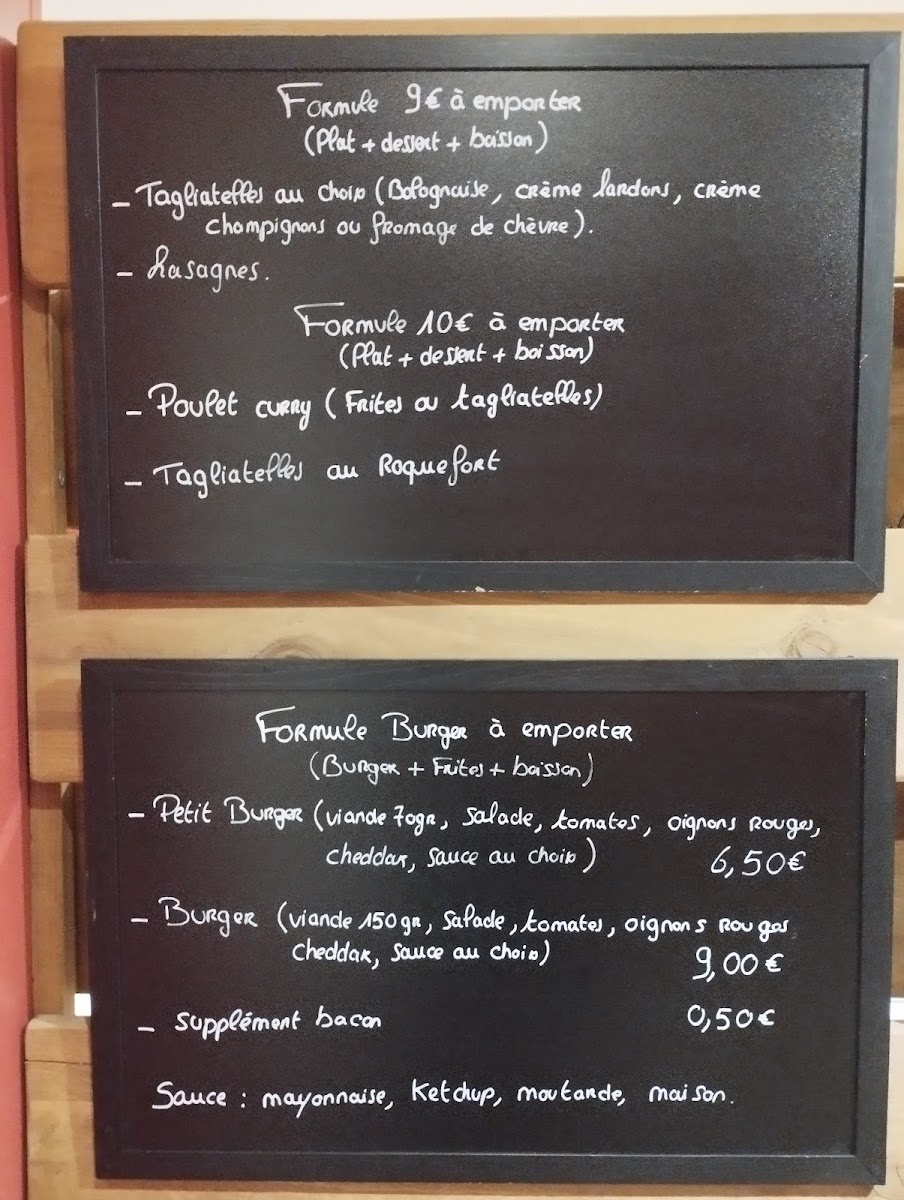 Formule 9€ à emporter
(Plat + dessert + boisson)
- Tagliatelles au choix (Bolognaise, crème lardons, crème
champignons ou fromage de chèvre).
- Lasagnes.
Formule 10€ à emporter
(Plat + dessert + boisson)
- Poulet curry (Frites ou tagliatelles)
- Tagliatelles au Roquefort
Formule Burger à emporter
(Burger + Frites + boisson)
- Petit Burger (viande 70gr, salade, tomates, oignons rouges,
cheddar, sauce au choix) 6,50€
- Burger (viande 150gr, salade, tomates, oignons rouges
cheddar, sauce au choix) 9,00€
- supplément bacon 0,50€
Sauce : mayonnaise, ketchup, moutarde, maison.